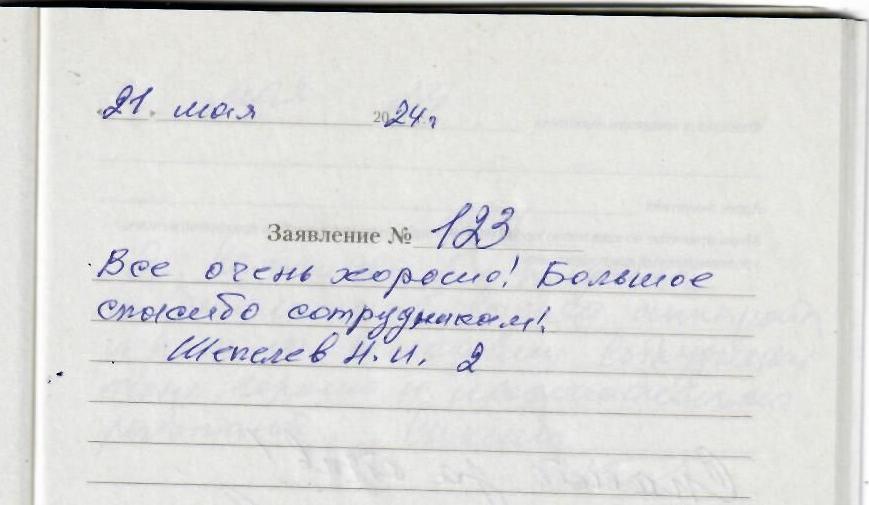 21. мая 2024 г
Заявление № 123
Все очень хорошо! Большое
спасибо сотрудникам!
Шепелев Н. И. 2